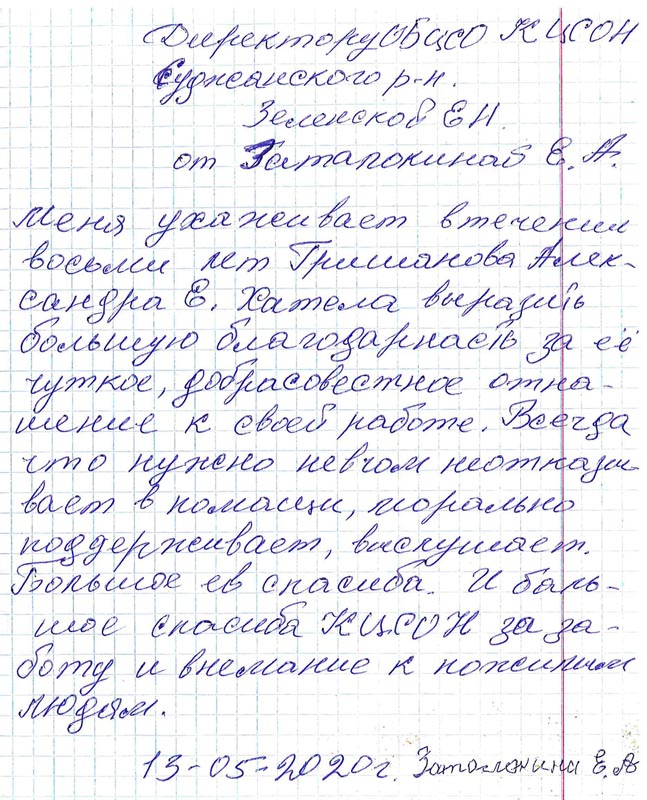 Директору ОБЦСО КЦСОН
Суджанского р-н.
Зеленской Е Н.
от Затапокиной Е. А.
Меня ухаживает втечении
восьми лет Гришанова Алек-
сандра Е. Хатела выразить
большую благодарнасть за её
чуткое, добрасовестное отна-
шение к своей работе. Всегда
что нужно невчом неотказы
вает в помащи, морально
поддерживает, выслушает.
Большое ев спасиба. И баль-
шое спасиба КЦСОН за за-
боту и внемание к пожилым
людям.
13-05-2020г. Е. А